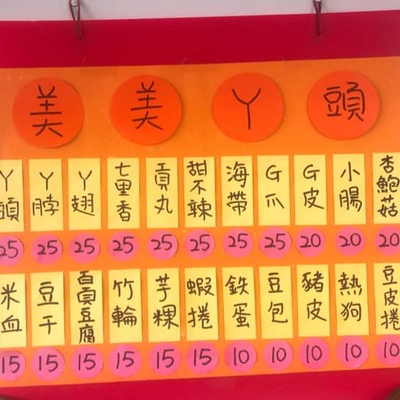 美美丫頭
丫頭 丫脖 丫翅 七里香 貢丸 甜不辣 海帶 G爪 G皮 小腸 杏鮑菇
25 25 25 25 25 25 25 25 20 20 20
米血 豆干 百頁豆腐 竹輪 芋粿 蝦捲 鉄蛋 豆包 豬皮 熱狗 豆皮捲
15 15 15 15 15 15 10 10 10 10 10